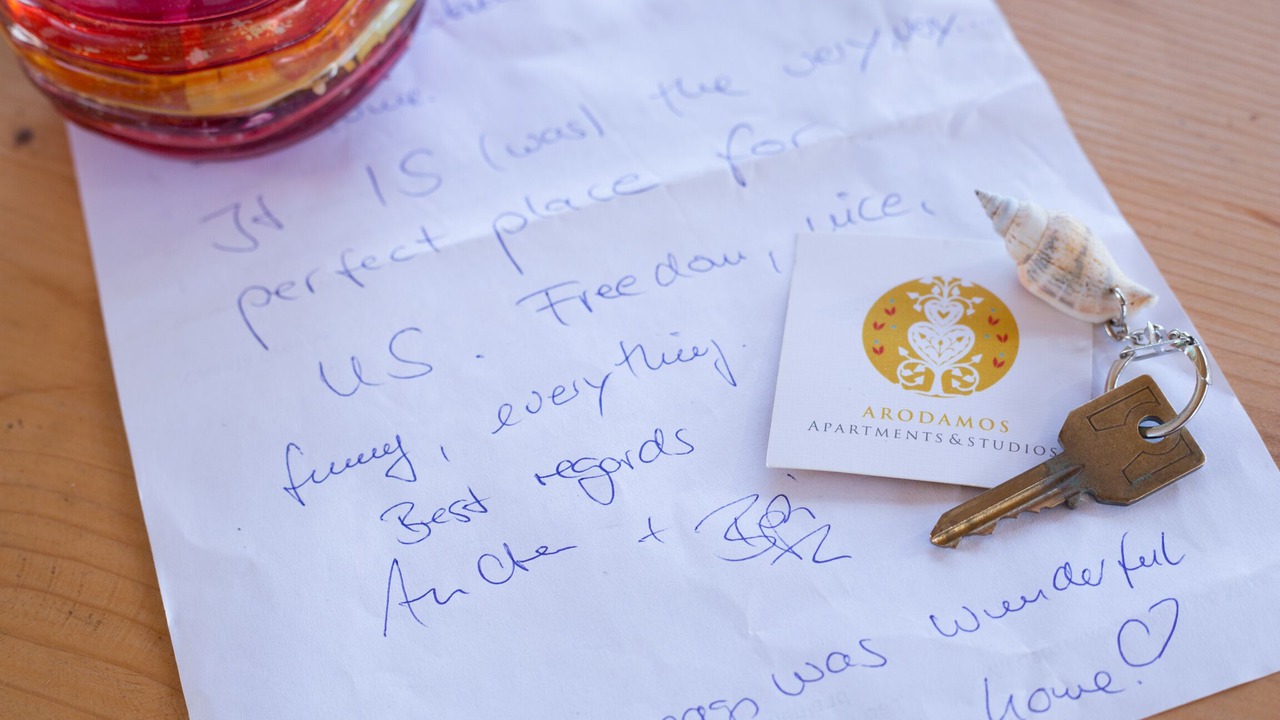 It IS (was) the very
perfect place for
us. Freedom, nice,
funny, everything.
Best regards
+
ARODAMOS
APARTMENTS & STUDIOS
was wunderfull
home! ♡